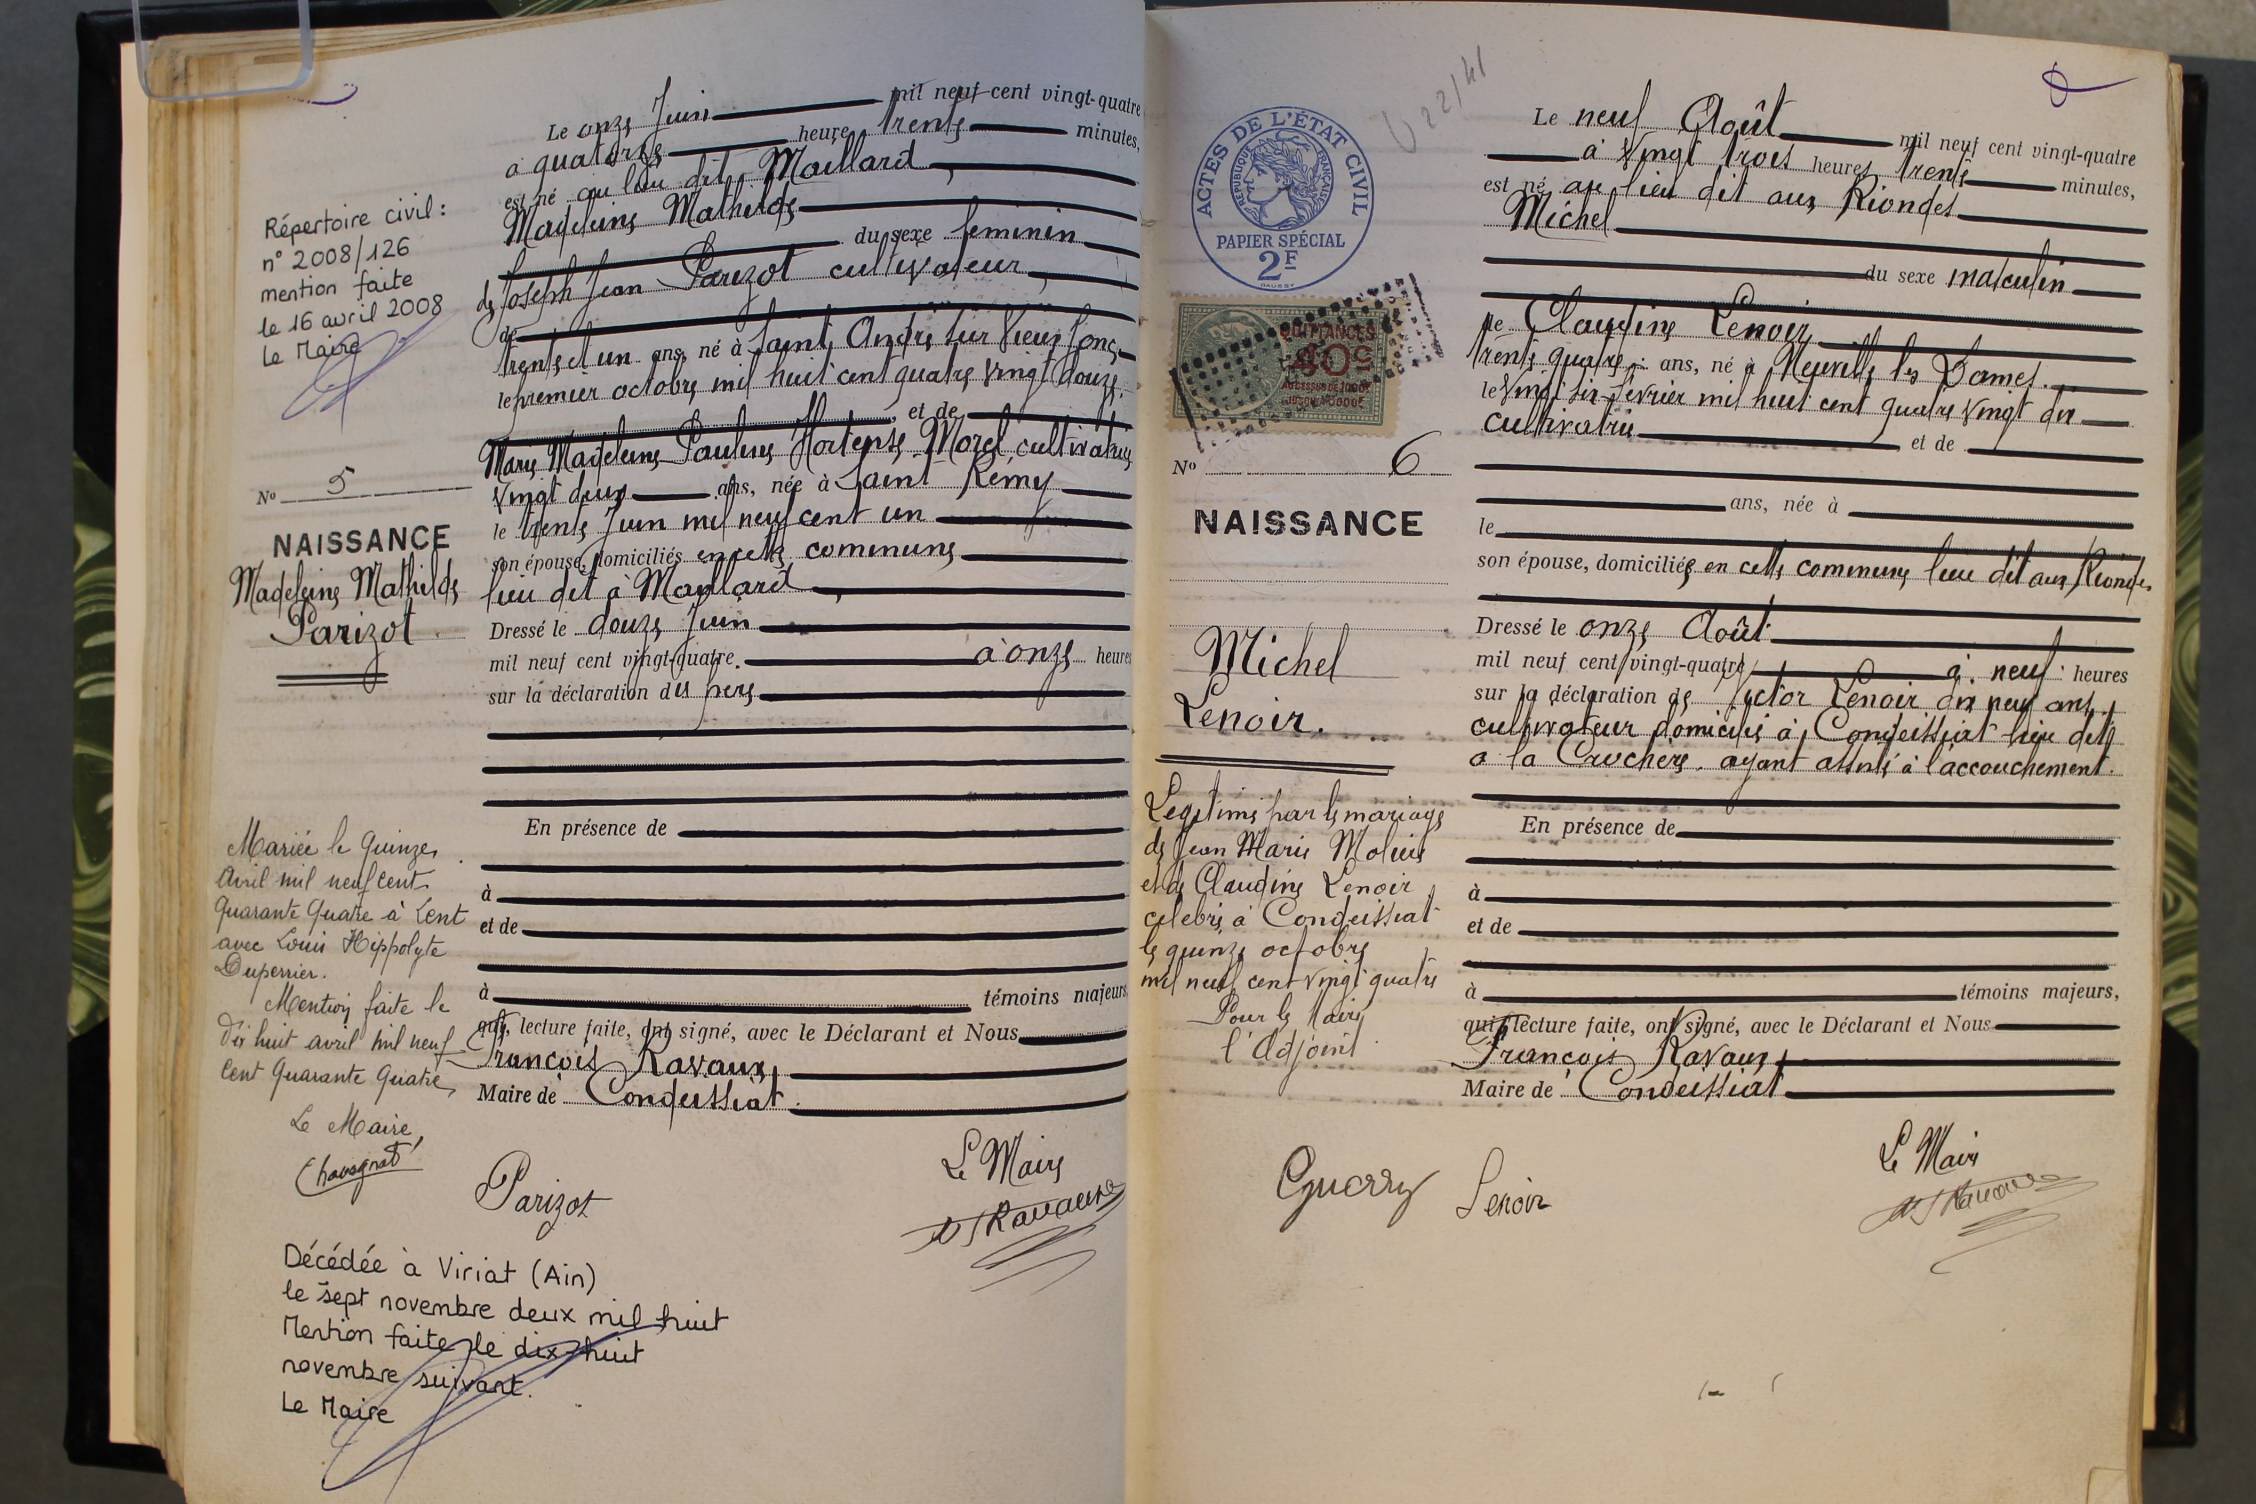 Le onze Juin mil neuf cent vingt-quatre
à quatorze heure trente minutes,
est né au lieu dit Maillard
Madeleine Mathilde
du sexe feminin
de Joseph Jean Parizot cultivateur
de
trente et un ans, né à Saint André sur Vieux Jonc
le premier octobre mil huit cent quatre vingt douze
et de
Marie Madeleine Pauline Hortense Morel, cultivatrice
vingt deux ans, née à Saint Rémy
le trente Juin mil neuf cent un
son épouse, domiciliés en cette commune
lieu dit à Maillard
Dressé le douze Juin
mil neuf cent vingt-quatre. à onze heures
sur la déclaration du père
En présence de
à
et de
à témoins majeurs,
qui, lecture faite, ont signé, avec le Déclarant et Nous
François Ravaux
Maire de Condeissiat.
Le Maire
Parizot
Répertoire civil :
n° 2008/126
mention faite
le 16 avril 2008
Le Maire
No 5
NAISSANCE
Madeleine Mathilde
Parizot
Mariée le quinze
Avril mil neuf cent
quarante quatre à Lent
avec Louis Hippolyte
Duperrier.
Mention faite le
dix huit avril mil neuf
cent quarante quatre
Le Maire,
Décédée à Viriat (Ain)
le sept novembre deux mil huit
Mention faite le dix-huit
novembre suivant.
Le Maire
ACTES DE L'ÉTAT CIVIL
RÉPUBLIQUE FRANÇAISE
PAPIER SPÉCIAL
2F
QUITTANCES
40c
No 6
NAISSANCE
Michel
Lenoir.
Légitimé par le mariage
de Jean Marie
et de Claudine Lenoir
célébré à Condeissiat
le quinze octobre
mil neuf cent vingt quatre
Pour le Maire
l'Adjoint
Le neuf Août mil neuf cent vingt-quatre
à vingt trois heures trente minutes,
est né au lieu dit aux Riondes
Michel
du sexe masculin
de Claudine Lenoir
trente quatre ans, né à Neuville les Dames
le vingt six février mil huit cent quatre vingt dix
cultivatrice et de
ans, née à
le
son épouse, domiciliée en cette commune lieu dit aux Riondes
Dressé le onze Août
mil neuf cent vingt-quatre à neuf heures
sur la déclaration de Lenoir dix neuf ans,
cultivateur domicilié à Condeissiat lieu dit
à la Crochère, ayant assisté à l'accouchement.
En présence de
à
et de
à témoins majeurs,
qui, lecture faite, ont signé, avec le Déclarant et Nous
François Ravaux
Maire de Condeissiat
Le Maire
Guerry Lenoir